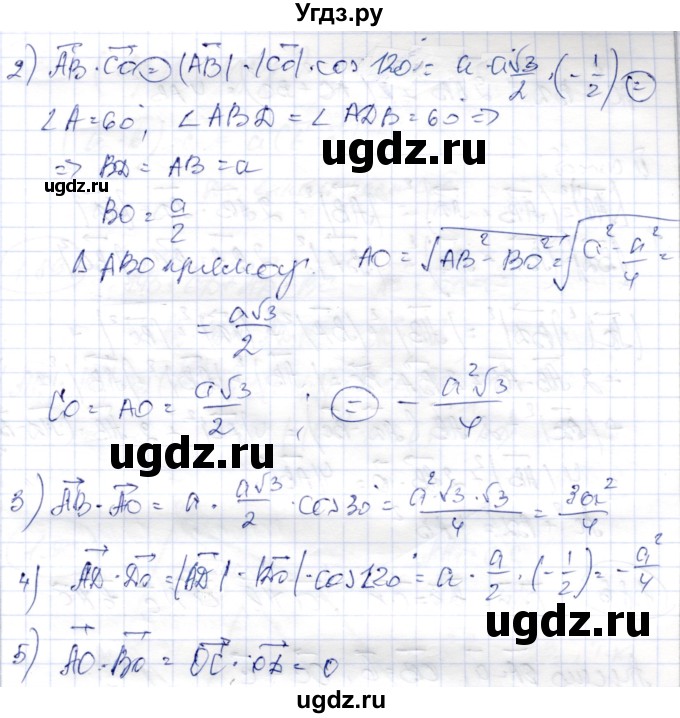 Угдз.ру
2) AB⃗ · CO⃗ = |AB⃗| · |CO⃗| · cos 120° = a · a√3/2 · (−1/2) =
∠A = 60°, ∠ABD = ∠ADB = 60° ⇒
⇒ BD = AB = a
ugdz.ru
ugdz.ru
BO = a/2
Δ ABO прямоуг. AO = √(AB² − BO²) = √(a² − a²/4) =
= a√3/2
CO = AO = a√3/2 ; = − a²√3/4
ugdz.ru
ugdz.ru
3) AB⃗ · AO⃗ = a · a√3/2 · cos 30° = a²√3·√3/4 = 3a²/4
4) AD⃗ · DO⃗ = |AD⃗| · |DO⃗| · cos 120° = a · a/2 · (−1/2) = − a²/4
ugdz.ru
5) AO⃗ · BO⃗ = OC⃗ · OD⃗ = 0
ugdz.ru